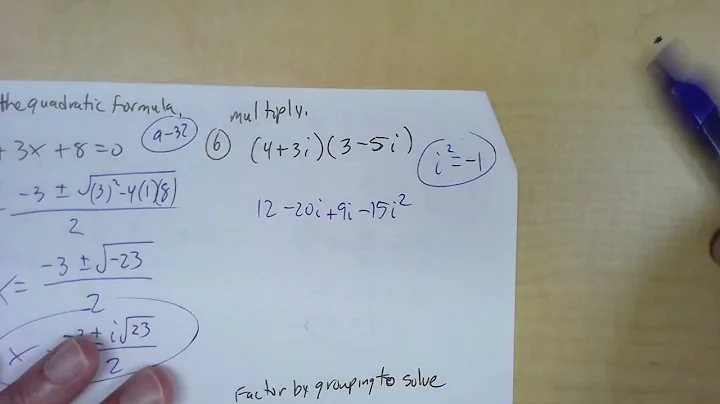 the quadratic formula.
+ 3x + 8 = 0
a-32
-3 ± √(3)²-4(1)(8)
2
x = -3 ± √-23
2
x -3 ± i√23
2
multiply.
6 (4+3i)(3-5i) i²=-1
12 -20i+9i-15i²
Factor by grouping to solve